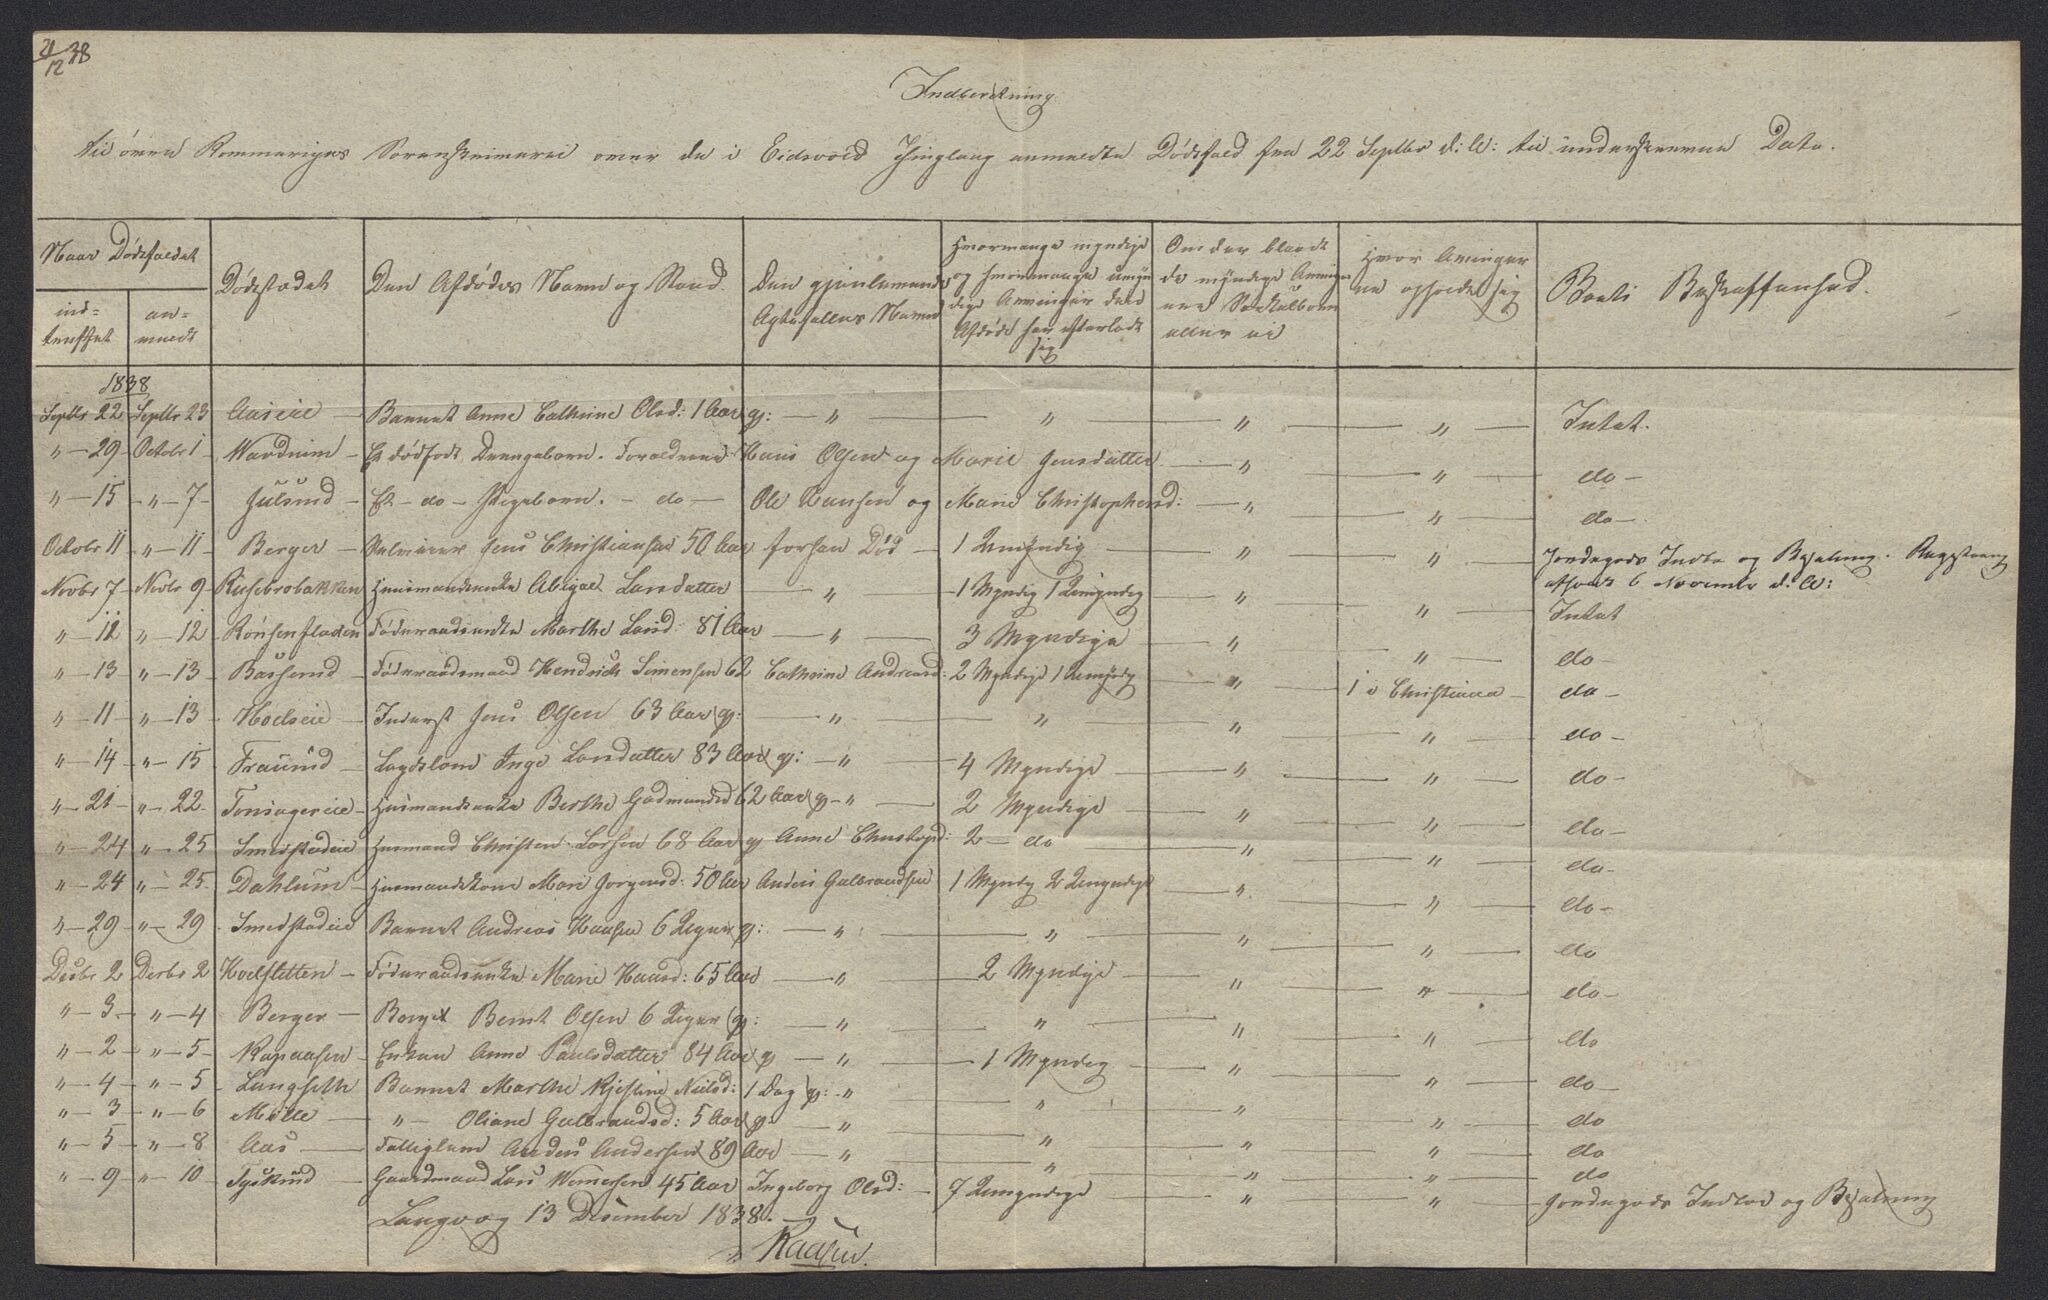 21/12 38
Indberetning
til øvre Rommeriges Sorenskriverie over de i Eidsvold Thinglaug anmeldte Dødsfald fra 22 Septbr d: A: til underskrevne Dato.
Naar Dødsfaldet
ind-
truffet
an-
meldt
Dødstedet
Den Afdødes Navn og Stand.
Den gjenlevende
Ægtefælles Navn
Hvormange myndige
og hvormange umyn
dige Arvinger den
Afdøde har efterladt
sig
Om der blandt
de myndige Arvinger
ere Særkulbørn
eller ei
Hvor Arvinger
ne opholde sig
Boets Beskaffenhed.
1838
Septbr 22 Septbr 23 Aaseie — Barnet Anne Cathrine Olsd: 1 Aar g: — " — " — " — " — Intet.
" — 29 Octobr 1 — Et dødfødt Drengebarn. Forældrene Hans Olsen og Marie Jensdatter — " — " — do —
" — 15 " — 7 — Julsrud — Et — do — Pigebarn. — do — Ole Hansen og Marie Christophersd: — " — " — do —
Octobr 11 " — 11 — Berger — Selveier Jens Christiansen 50 Aar forhen Død — 1 Umyndig — " — " Jordegods Indbo og Besætning. Registrering
afholdt 6 November d: A:
Novbr 7 Novbr 9 Husmandsenke Abigael Larsdatter — " — 1 Myndig 1 Umyndig — " — " — Intet
" — 12 " — 12 Føderaadsenke Marthe Larsd: 81 Aar — " — 3 Myndige — " — " — do —
" — 13 " — 13 — Føderaadsmand Hendrich Simensen 62 Cathrine Andreasd: 2 Myndige 1 Umyndig — " — 1 i Christiania — do —
" — 11 — " — 13 — Inderst Jens Olsen 63 Aar g: — " — " — " — " — do —
" — 14 " — 15 — Lægdslem Inge Larsdatter 83 Aar g: — " — 4 Myndige — " — " — do —
" — 21 — " — 22 — Husmandsenke Berthe Gudmundsd 62 Aar g — " — 2 Myndige — " — " — do —
" — 24 " — 25 Smedstadeie Husmand Christen Larsen 68 Aar g Anne Christophd: 2 — do — " — " — do —
" — 24 " — 25 Dahlum — Husmandskone Mari Jorgensd: 50 Aar Anders Gulbrandsen 1 Myndg 2 Umyndige — " — " — do —
" — 29 " — 29 — Smedstadeie Barnet Andreas Hansen 6 Uger g: — " — " — " — " — do
Decbr 2 Decbr 2 Føderaadsenke Marie Hansd: 65 Aar — " — 2 Myndige — " — " — do —
" — 3 — " — 4 Berger — Bernt Olsen 6 Uger g: — " — " — " — " — do
" — 2 " — 5 — Enken Anne Paulsdatter 84 Aar g — " — 1 Myndig — " — " — do —
" — 4 " — 5 — Langseth Barnet Marthe Kjestine Nielsd: 1 Dag g: " — " — " — " — do
" — 3 " — 6 Mølle — " — Oliane Gulbrandsd: 5 Aar g: — " — " — " — " — do
" — 5 " — 8 Aas — Fattiglem Anders Andersen 89 Aar — " — " — " — " — do
" — 9 " — 10 — Gaardmand Lars 45 Aar Ingeborg Olsd: — 7 Umyndige — " — " — Jordegods Indboe og Besætning
13 December 1838.